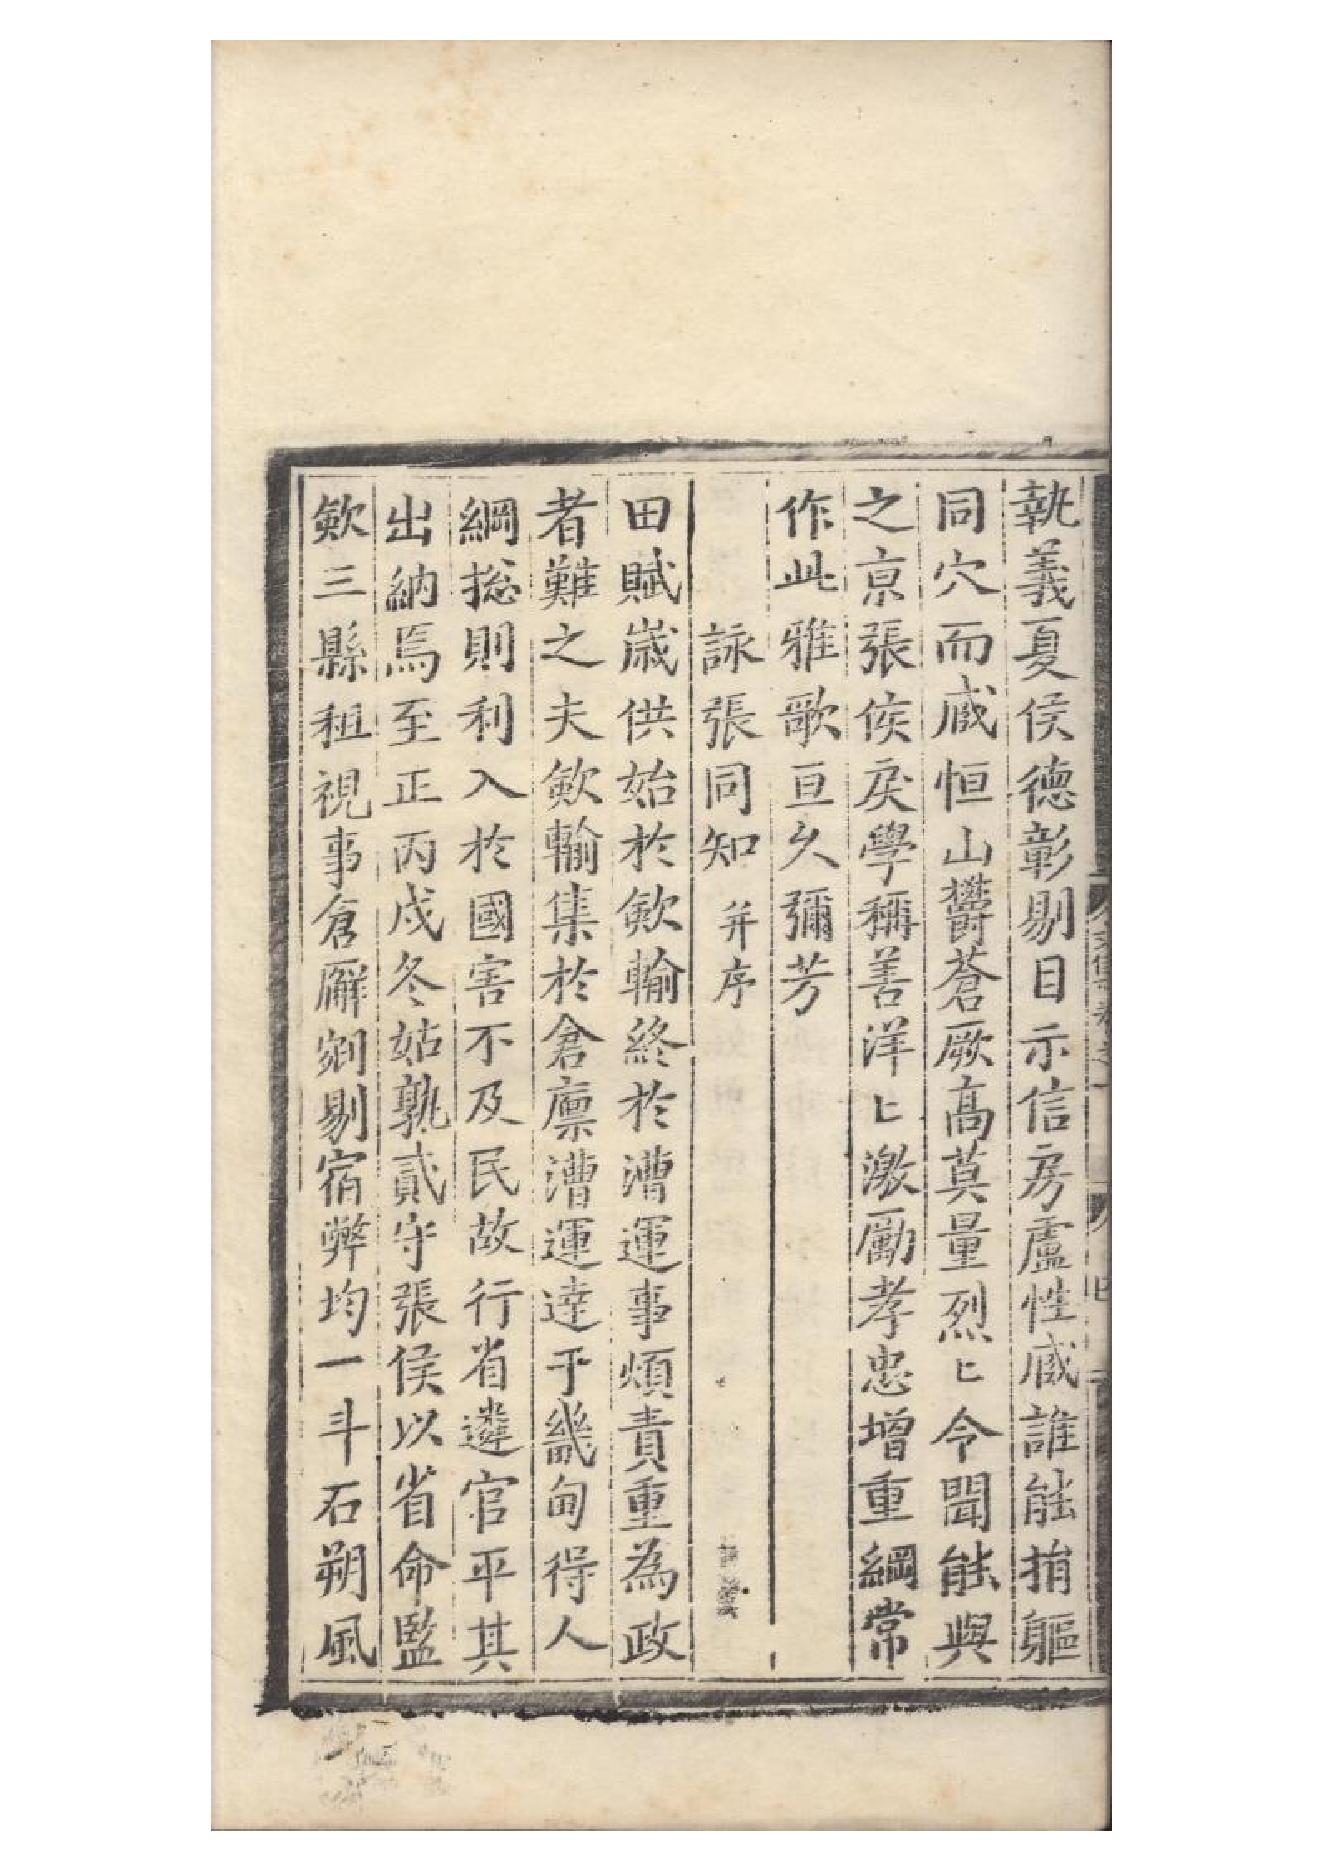 執義夏侯德彰剔目示信房盧性臧誰能捐軀
同穴而臧恒山欝蒼厥高莫量烈〻令聞能與
之京張侯戾學稱善洋〻激勵孝忠增重綱常
作此雅歌亘久彌芳
詠張同知 并序
田賦歲供始於斂輸終於漕運事煩責重為政
者難之夫斂輸集於倉廩漕運達于畿甸得人
綱揔則利入於國害不及民故行省遴官平其
出納焉至正丙戌冬姑孰貳守張侯以省命監
斂三縣租視事倉廨剜剔宿弊均一斗石朔風